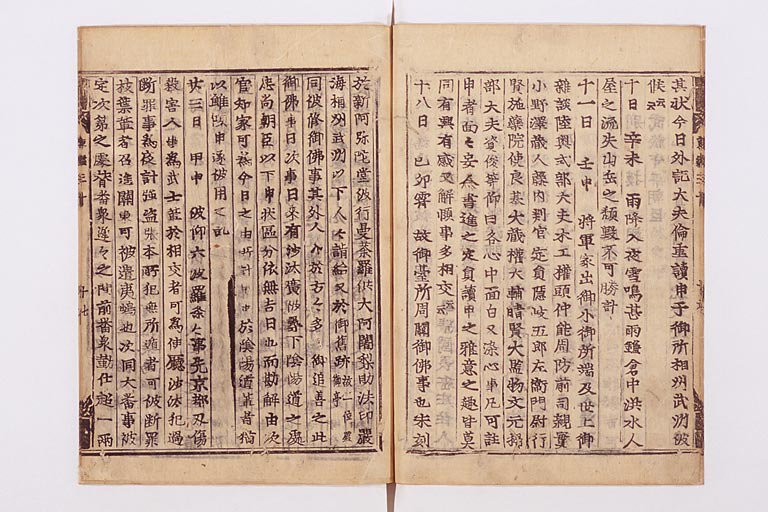 其状今日外記大夫倫重讀申于御所相州武州被
候云云
十日 辛未 雨降入夜雷鳴甚雨鎌倉中洪水人
屋之流失山岳之頽毀不可勝計
十一日 壬申 將軍家出御小御所端及世上御
雜談陸奥式部大夫木工權頭仲能周防前司親實
小野澤蔵人藤内判官定員隱岐五郎左衛門尉行
賢施藥院使良基大蔵權大輔晴賢大監物文元掃
部大夫等候御前日各心中面白又染心事凡可註
申者面之安人書進之定員讀申之雅意之趣皆莫
同有興有感又解頤事多相交云云
十八日 己卯 霽 故御臺所周闋御佛事也未刻
於新阿弥陀堂被行曼荼羅供大阿闍梨助法印嚴
海相州武州以下人人詣給又於御舊跡
同被修御佛事其外人人於方方多御追善之此
御佛事日次事日來有沙汰獲彼勢下陰陽道之處
忠尚朝臣以下申状區分依無吉日也而勘解由次
官知家可為今日之由
以離故申遂被用之訖
廿三日 甲申 被仰六波羅条々事先京都刃傷
殺害人事為武士輩於相交者可為使廳沙汰犯過
断罪事為夜討強盗張本所犯無所遁者可被断罪
枝葉輩者召進關東可被遣夷嶋也次同大番事被
定次第之處背番衆遅々之間前番衆勤仕超一兩